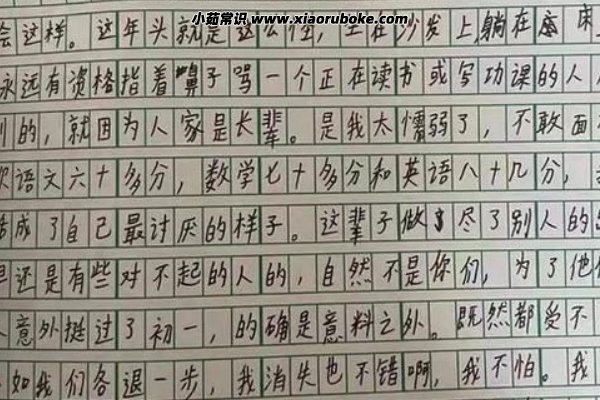 小茹常识 www.xiaoruboke.com
会这样。这年头就是这么怪,坐在沙发上躺在床
永远有资格指着鼻子骂一个正在读书或写功课的人
的,就因为人家是长辈。是我太懦弱了,不敢面
语文六十多分,数学七十多分和英语八十几分,
成了自己最讨厌的样子。这辈子做尽了别人的
还是有些对不起的人的,自然不是你们,为了他
意外挺过了初一,的确是意料之外。既然都受不
如我们各退一步,我消失也不错啊,我不怕。我